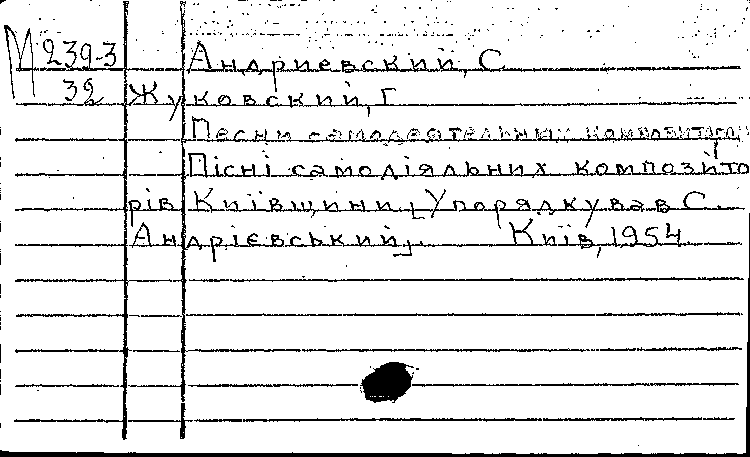 М 239-3 Андриевский, С
32 Жуковский, Г
Песни самодеятельных композиторов
Пісні самодіяльних композито
рів Київщини, [Упорядкував С.
Андрієвський]. Київ, 1954